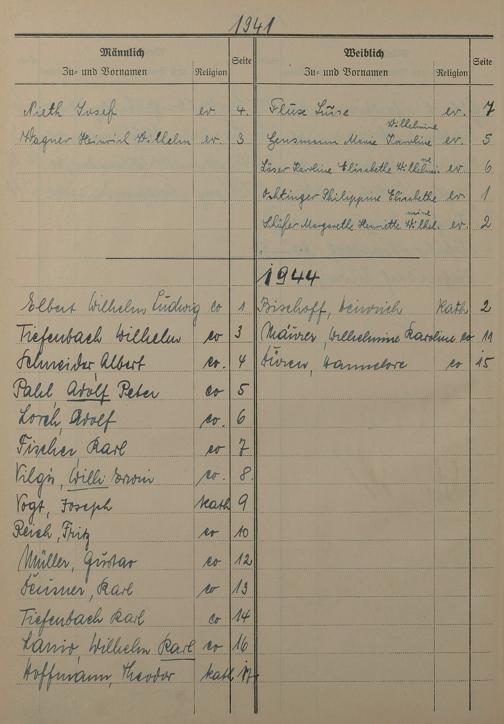 1941
Männlich
Zu- und Vornamen Religion Seite
Nieth Josef ev 4.
Wagner Heinrich Wilhelm ev. 3
Weiblich
Zu- und Vornamen Religion Seite
Fluse Luise ev. 7
Wilhelmine
Gensmann Marie Karoline ev. 5
Läser Karoline Elisabethe Wilhelmi. ne ev. 6
Ochtinger Philippine Elisabethe ev. 1
Schäfer Margarethe Henriette Wilhel. mine ev. 2
1944
Elbert Wilhelm Ludwig ev 1
Tiefenbach Wilhelm ev 3
Schneider Albert ev. 4
Pahl, Adolf Peter ev 5
Lorch, Adolf ev. 6
Fischer, Karl ev 7
Vilgis, Willi Erwin ev. 8.
Vogt, Joseph Kath 9
Reich, Fritz ev 10
Müller, Gustav ev 12
Karl ev 13
Tiefenbach Karl ev 14
Wilhelm Karl ev 16
Hoffmann, Theodor kath 17.
Bischoff, Heinrich Kath 2
Mäurer, Wilhelmine Karoline ev 11
Hannelore ev 15